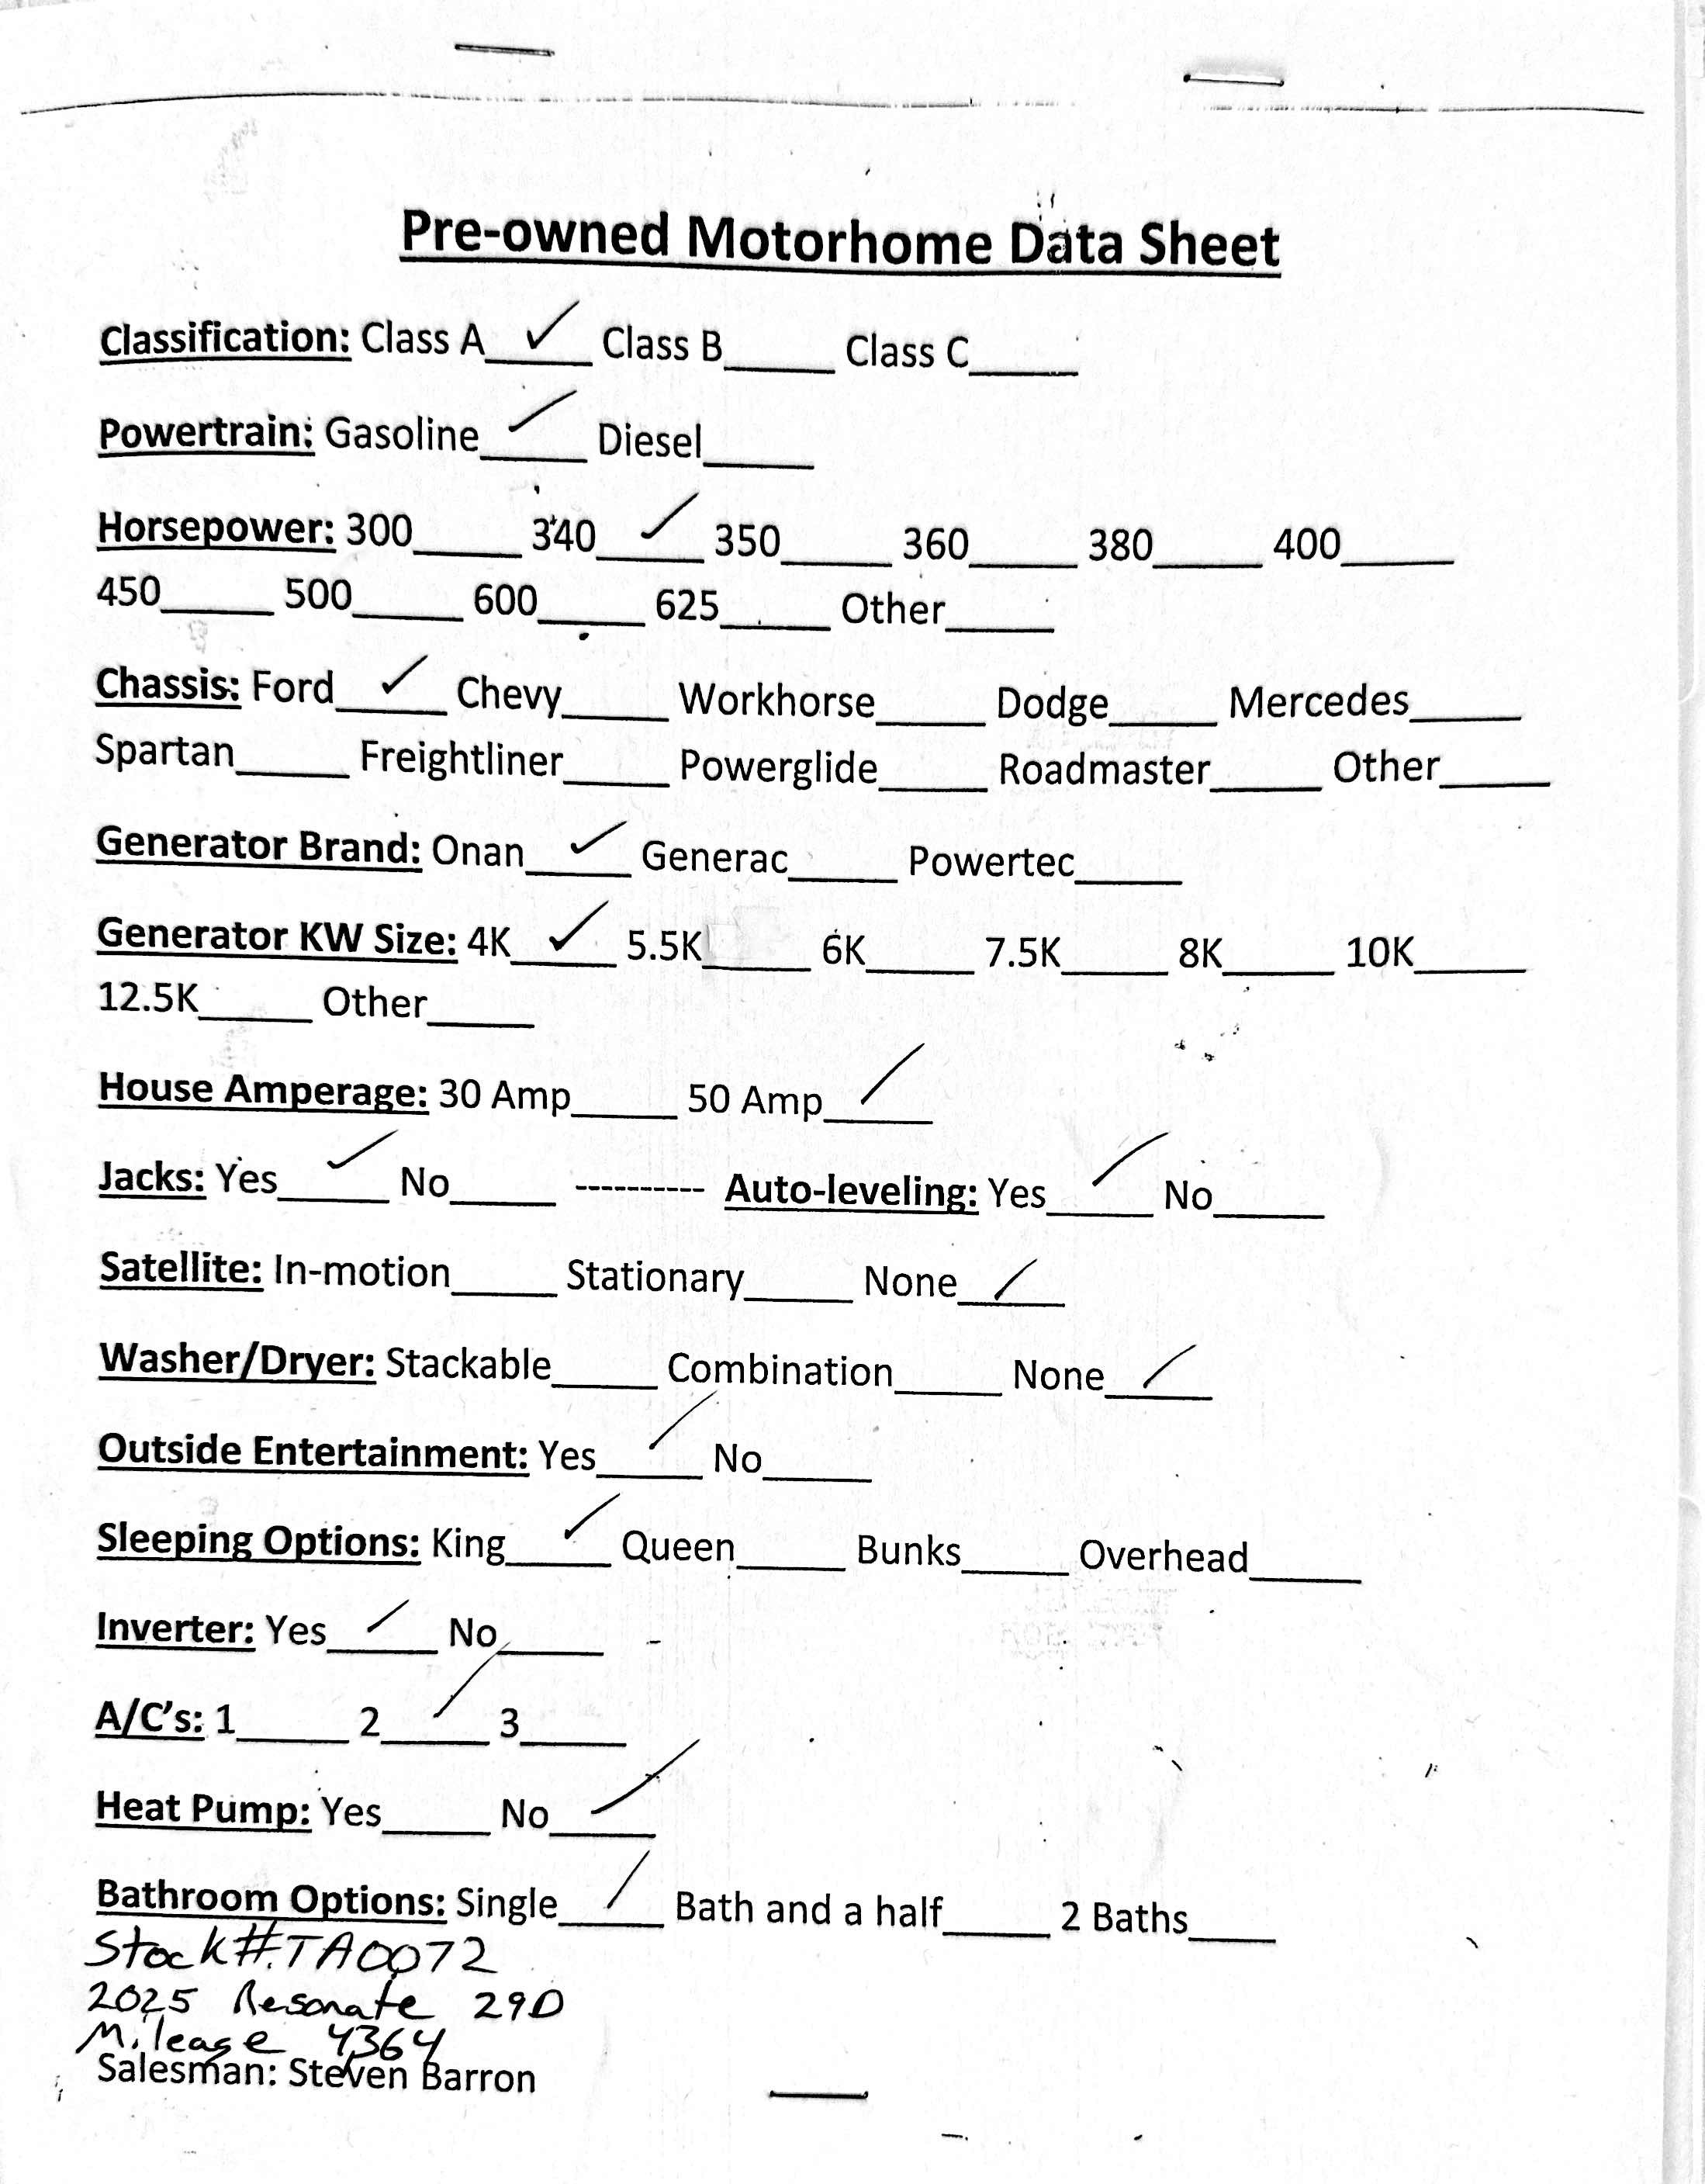 Pre-owned Motorhome Data Sheet
Classification: Class A__✓__ Class B_____ Class C_____
Powertrain: Gasoline__✓__ Diesel_____
Horsepower: 300_____ 340__✓__ 350_____ 360_____ 380_____ 400_____
450_____ 500_____ 600_____ 625_____ Other_____
Chassis: Ford__✓__ Chevy_____ Workhorse_____ Dodge_____ Mercedes_____
Spartan_____ Freightliner_____ Powerglide_____ Roadmaster_____ Other_____
Generator Brand: Onan__✓__ Generac_____ Powertec_____
Generator KW Size: 4K__✓__ 5.5K_____ 6K_____ 7.5K_____ 8K_____ 10K_____
12.5K_____ Other_____
House Amperage: 30 Amp_____ 50 Amp__✓__
Jacks: Yes__✓__ No_____ ---------- Auto-leveling: Yes__✓__ No_____
Satellite: In-motion_____ Stationary_____ None__✓__
Washer/Dryer: Stackable_____ Combination_____ None__✓__
Outside Entertainment: Yes__✓__ No_____
Sleeping Options: King__✓__ Queen_____ Bunks_____ Overhead_____
Inverter: Yes__✓__ No_____
A/C's: 1_____ 2__✓__ 3_____
Heat Pump: Yes_____ No__✓__
Bathroom Options: Single__✓__ Bath and a half_____ 2 Baths____
Stock#:TA0072
2025 Resonate 29D
Mileage 4364
Salesman: Steven Barron